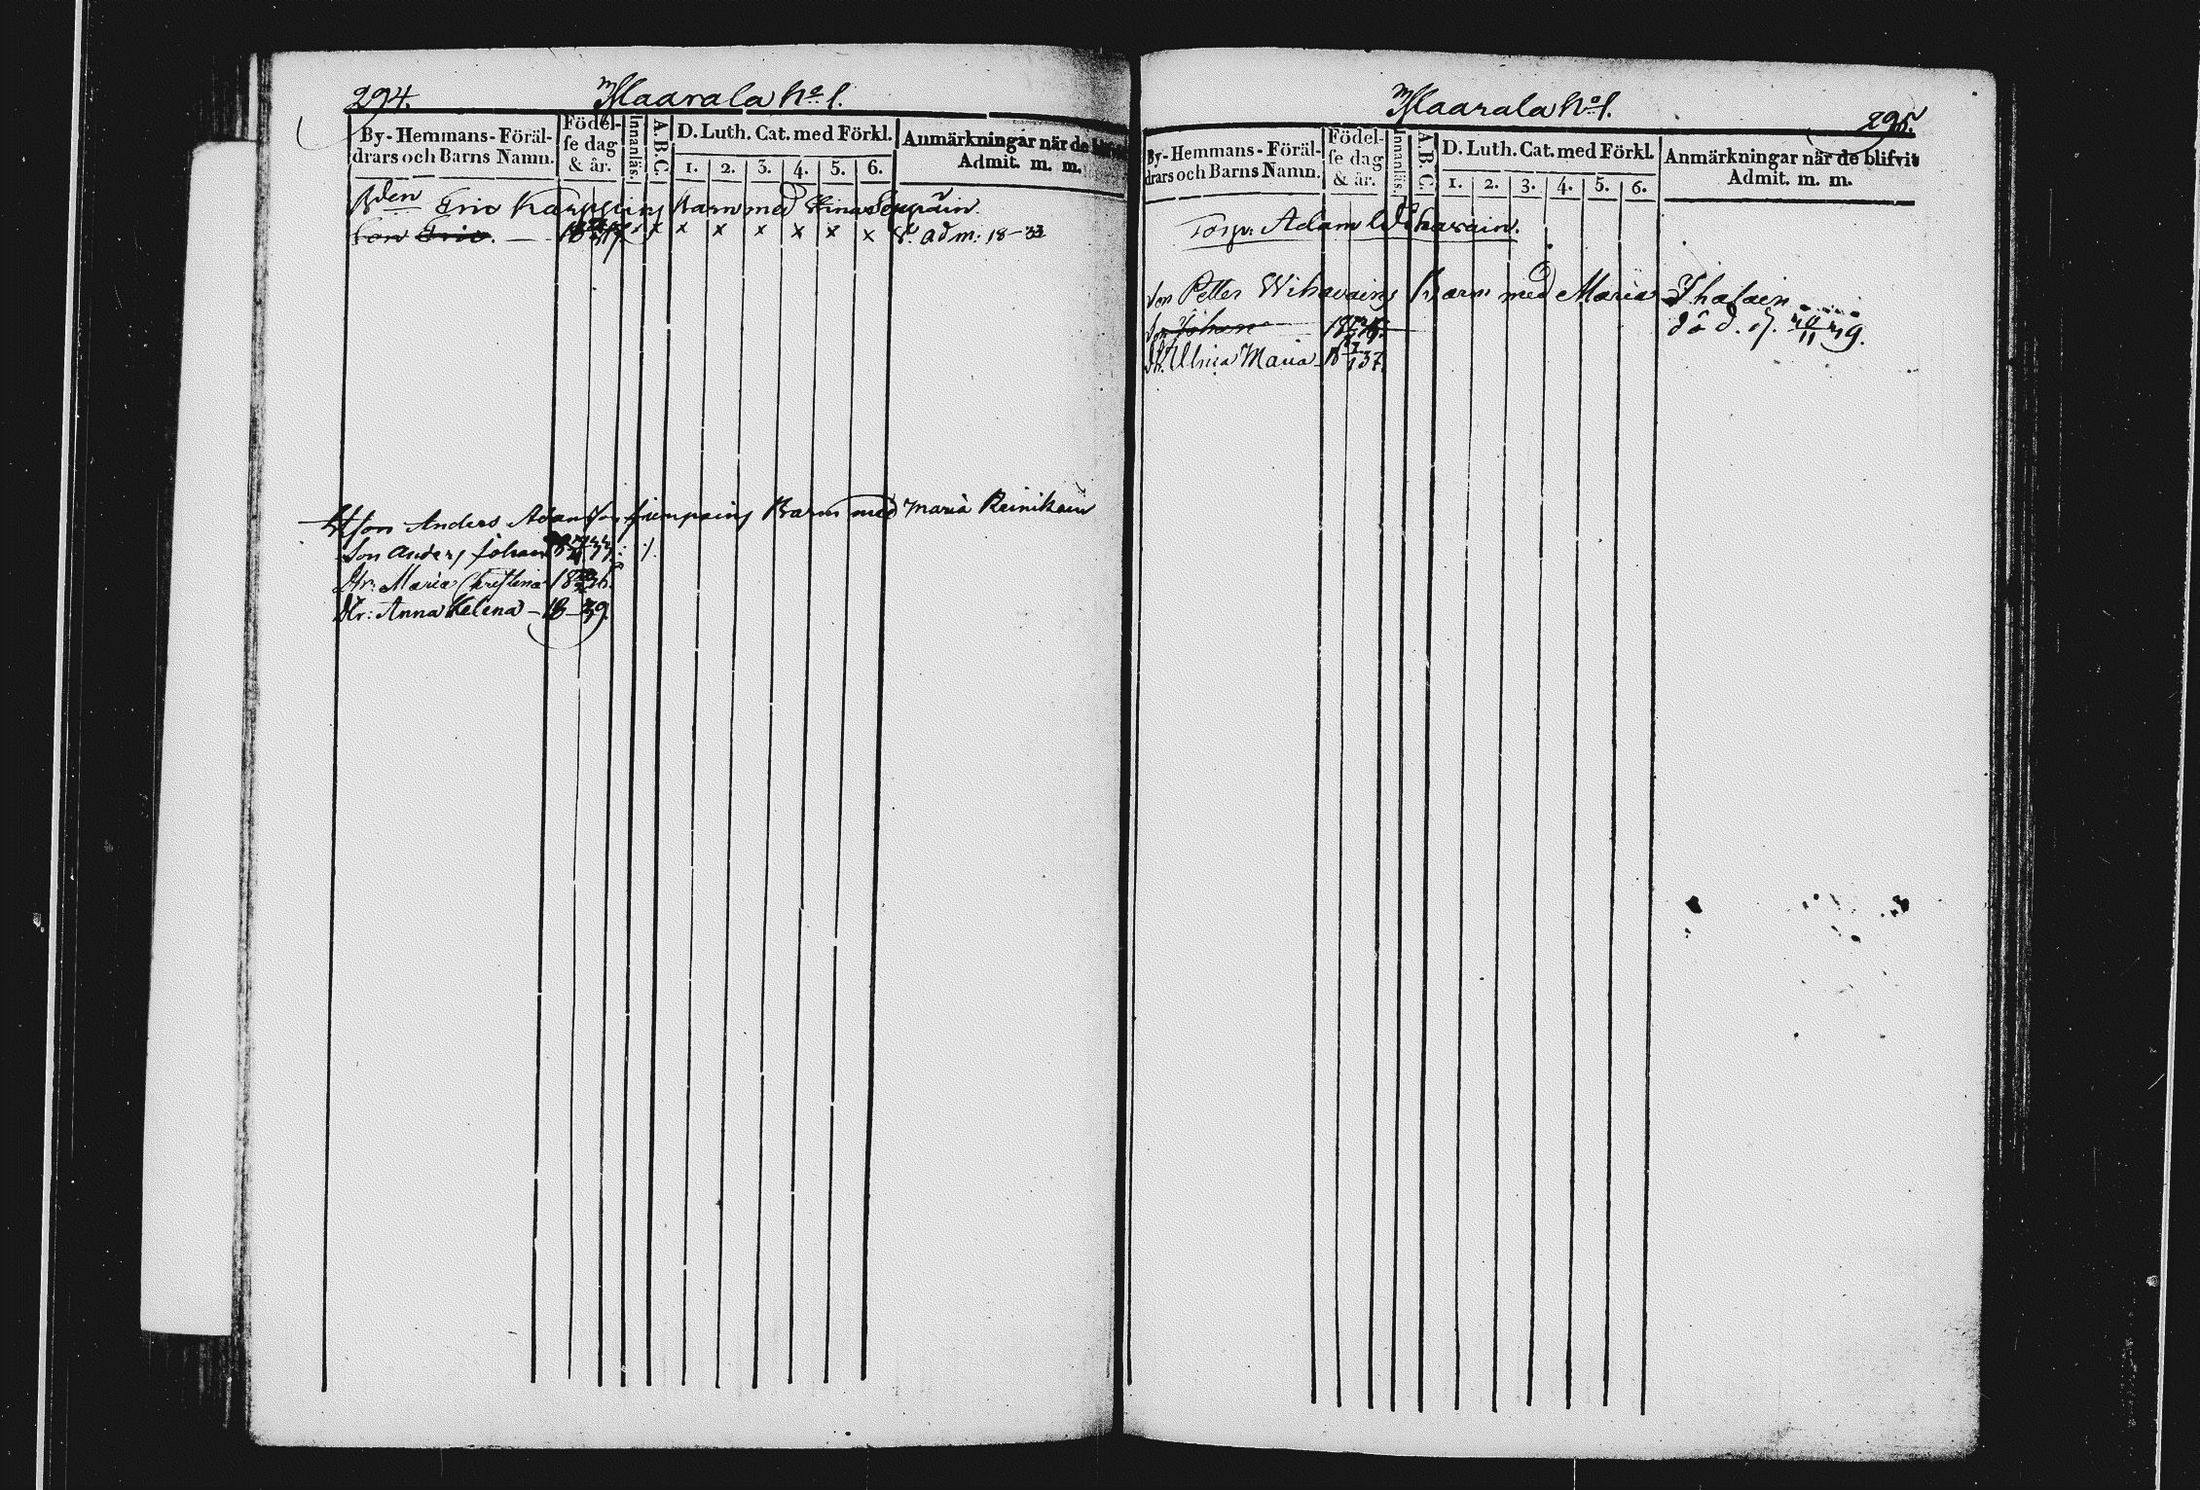 294.
Maarala No. 1.
By-Hemmans-Föräl-
drars och Barns Namn.
Födel-
se dag
& år.
Innanläs.
A.B.C.
D. Luth. Cat. med Förkl.
1. 2. 3. 4. 5. 6.
Anmärkningar när de blifvit
Admit. m. m.
Bden Eric Karppains Barn med Stina Seppäin
Son Eric. — 18 17. x x x x x x x adm: 18-33
Anders Adamson Barn med Maria Reinikain
Son Anders Johan 18 33.
Dtr: Maria Christina 18 36.
Dtr: Anna Helena - 18-39.
Maarala No. 1.
295.
By-Hemmans-Föräl-
drars och Barns Namn.
Födel-
se dag
& år.
Innanläs.
A.B.C.
D. Luth. Cat. med Förkl.
1. 2. 3. 4. 5. 6.
Anmärkningar när de blifvit
Admit. m. m.
Torp: Adam Wihavain.
Son Petter Wihavains Barn med Maria Ihalain
Son Johan 18 död. d.
Dtr. Ulrica Maria 18 37.